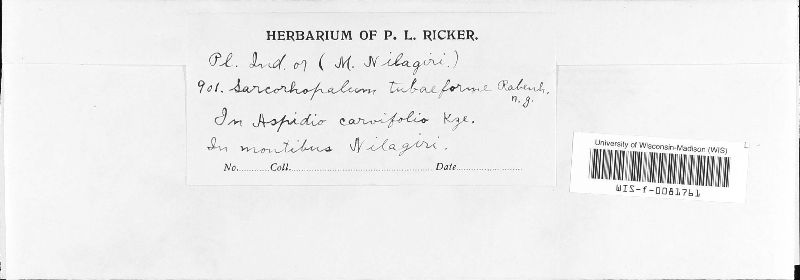 HERBARIUM OF P. L. RICKER.
Pl. Ind. or (M. Nilagiri.)
901. Sarcorhopalum tubaeforme Rabenh.
n. g.
In Aspidio carvifolio Kze.
In montibus Nilagiri.
No.......... Coll. .......... Date..........
University of Wisconsin-Madison (WIS)
WIS-f-0081761